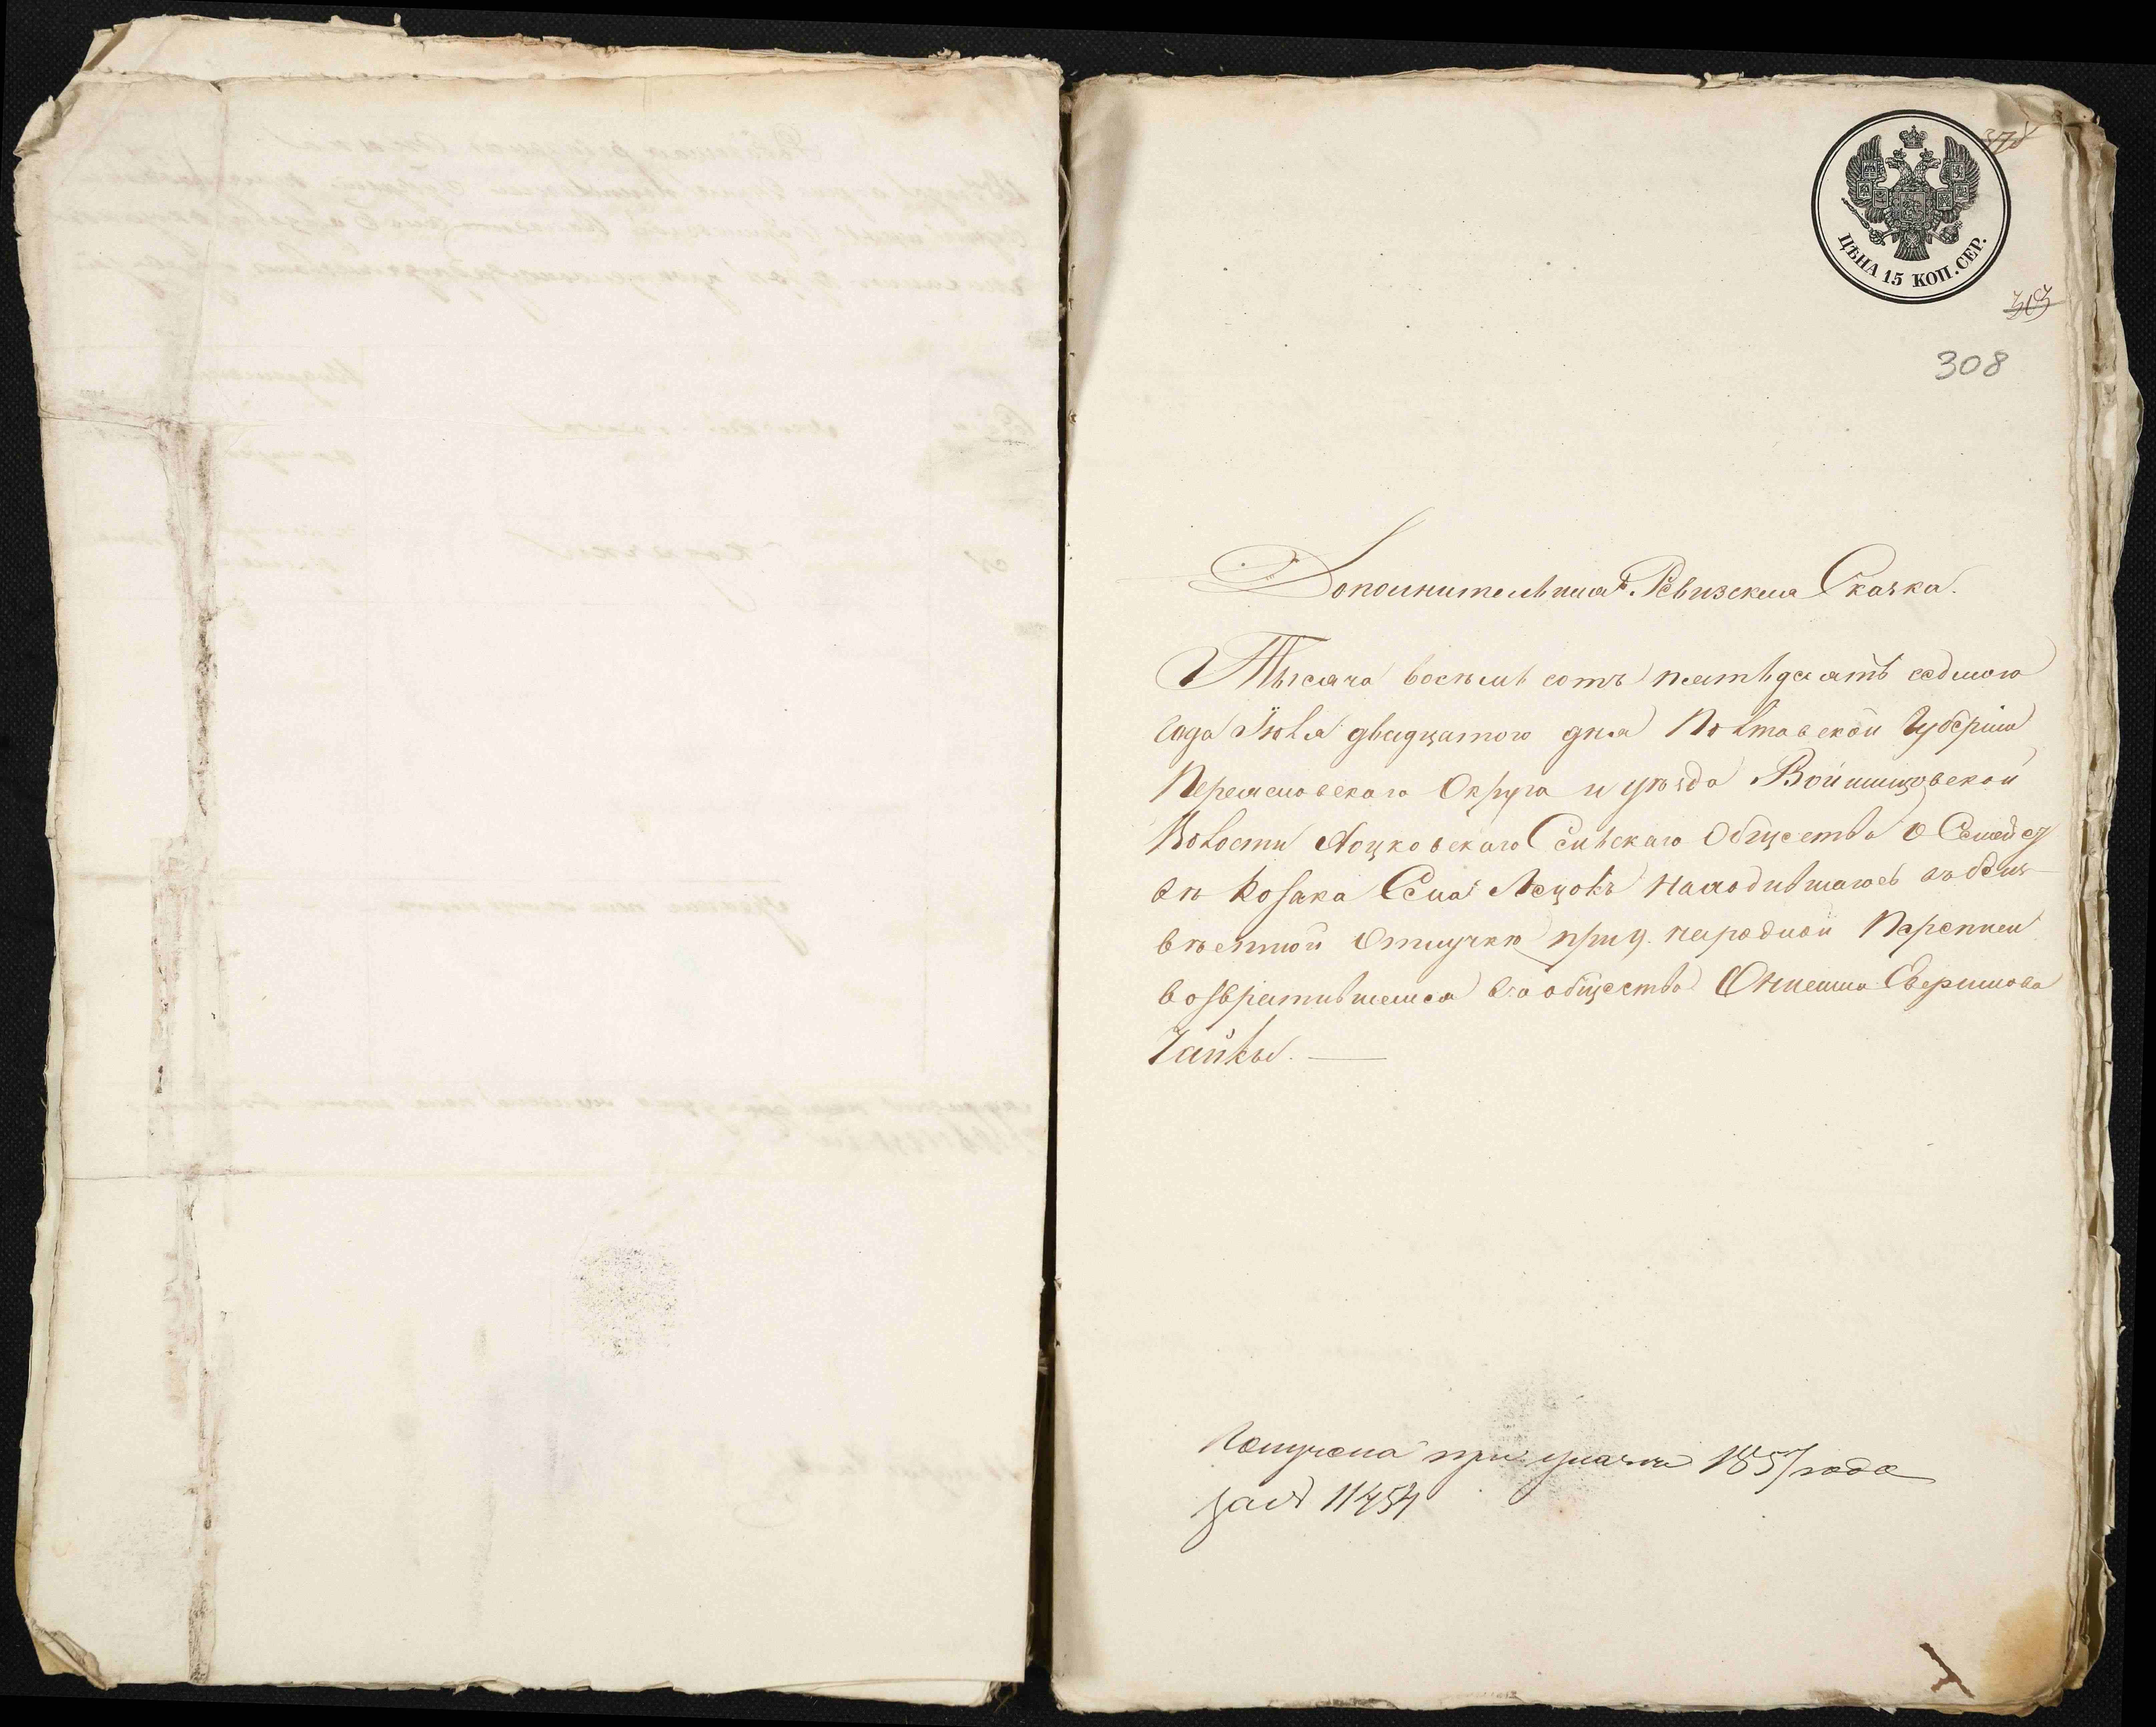 378
ЦѢНА 15 КОП. СЕР.
303
308
Дополнительная Ревизская Сказка.
Тысяча восемь сотъ пятьдесятъ седмого
года Июля двадцатого дня Полтавской Губерніи
Переясловского Округа и уѣзда Войтовской
Волости Лоцковского Сельскаго Общества о Семейст
вѣ Козака Села Лецокъ находившагось въ безъ
вѣстной Отлучкѣ при 9. народной Переписи
возвратившемся въ общество Онисима Евфимова
Чайки.
Получена при указе 1857 года
за № 11454